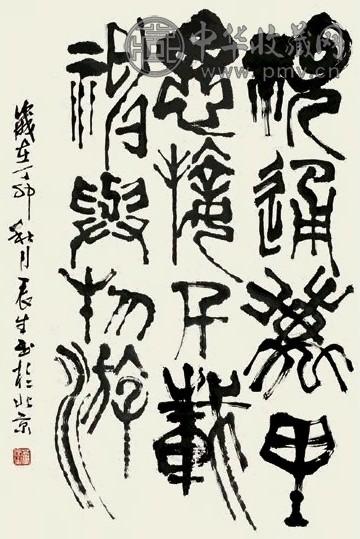 視通萬里
思接千載
神與物游
歲在丁卯秋月書於北京
中华收藏网
www.pmv.cn